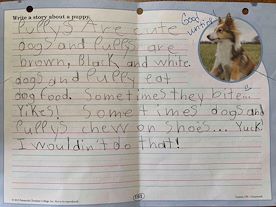 Write a story about a puppy.
Good
writing!
Pullys Are cute
dogs and Pullys are
brown, Black and white.
dogs and Pully eat
dog food. Sometimes they bite...
Yikes! Sometimes dogs and
Pullys chew on shoes... Yuck!
I wouldin't do that!